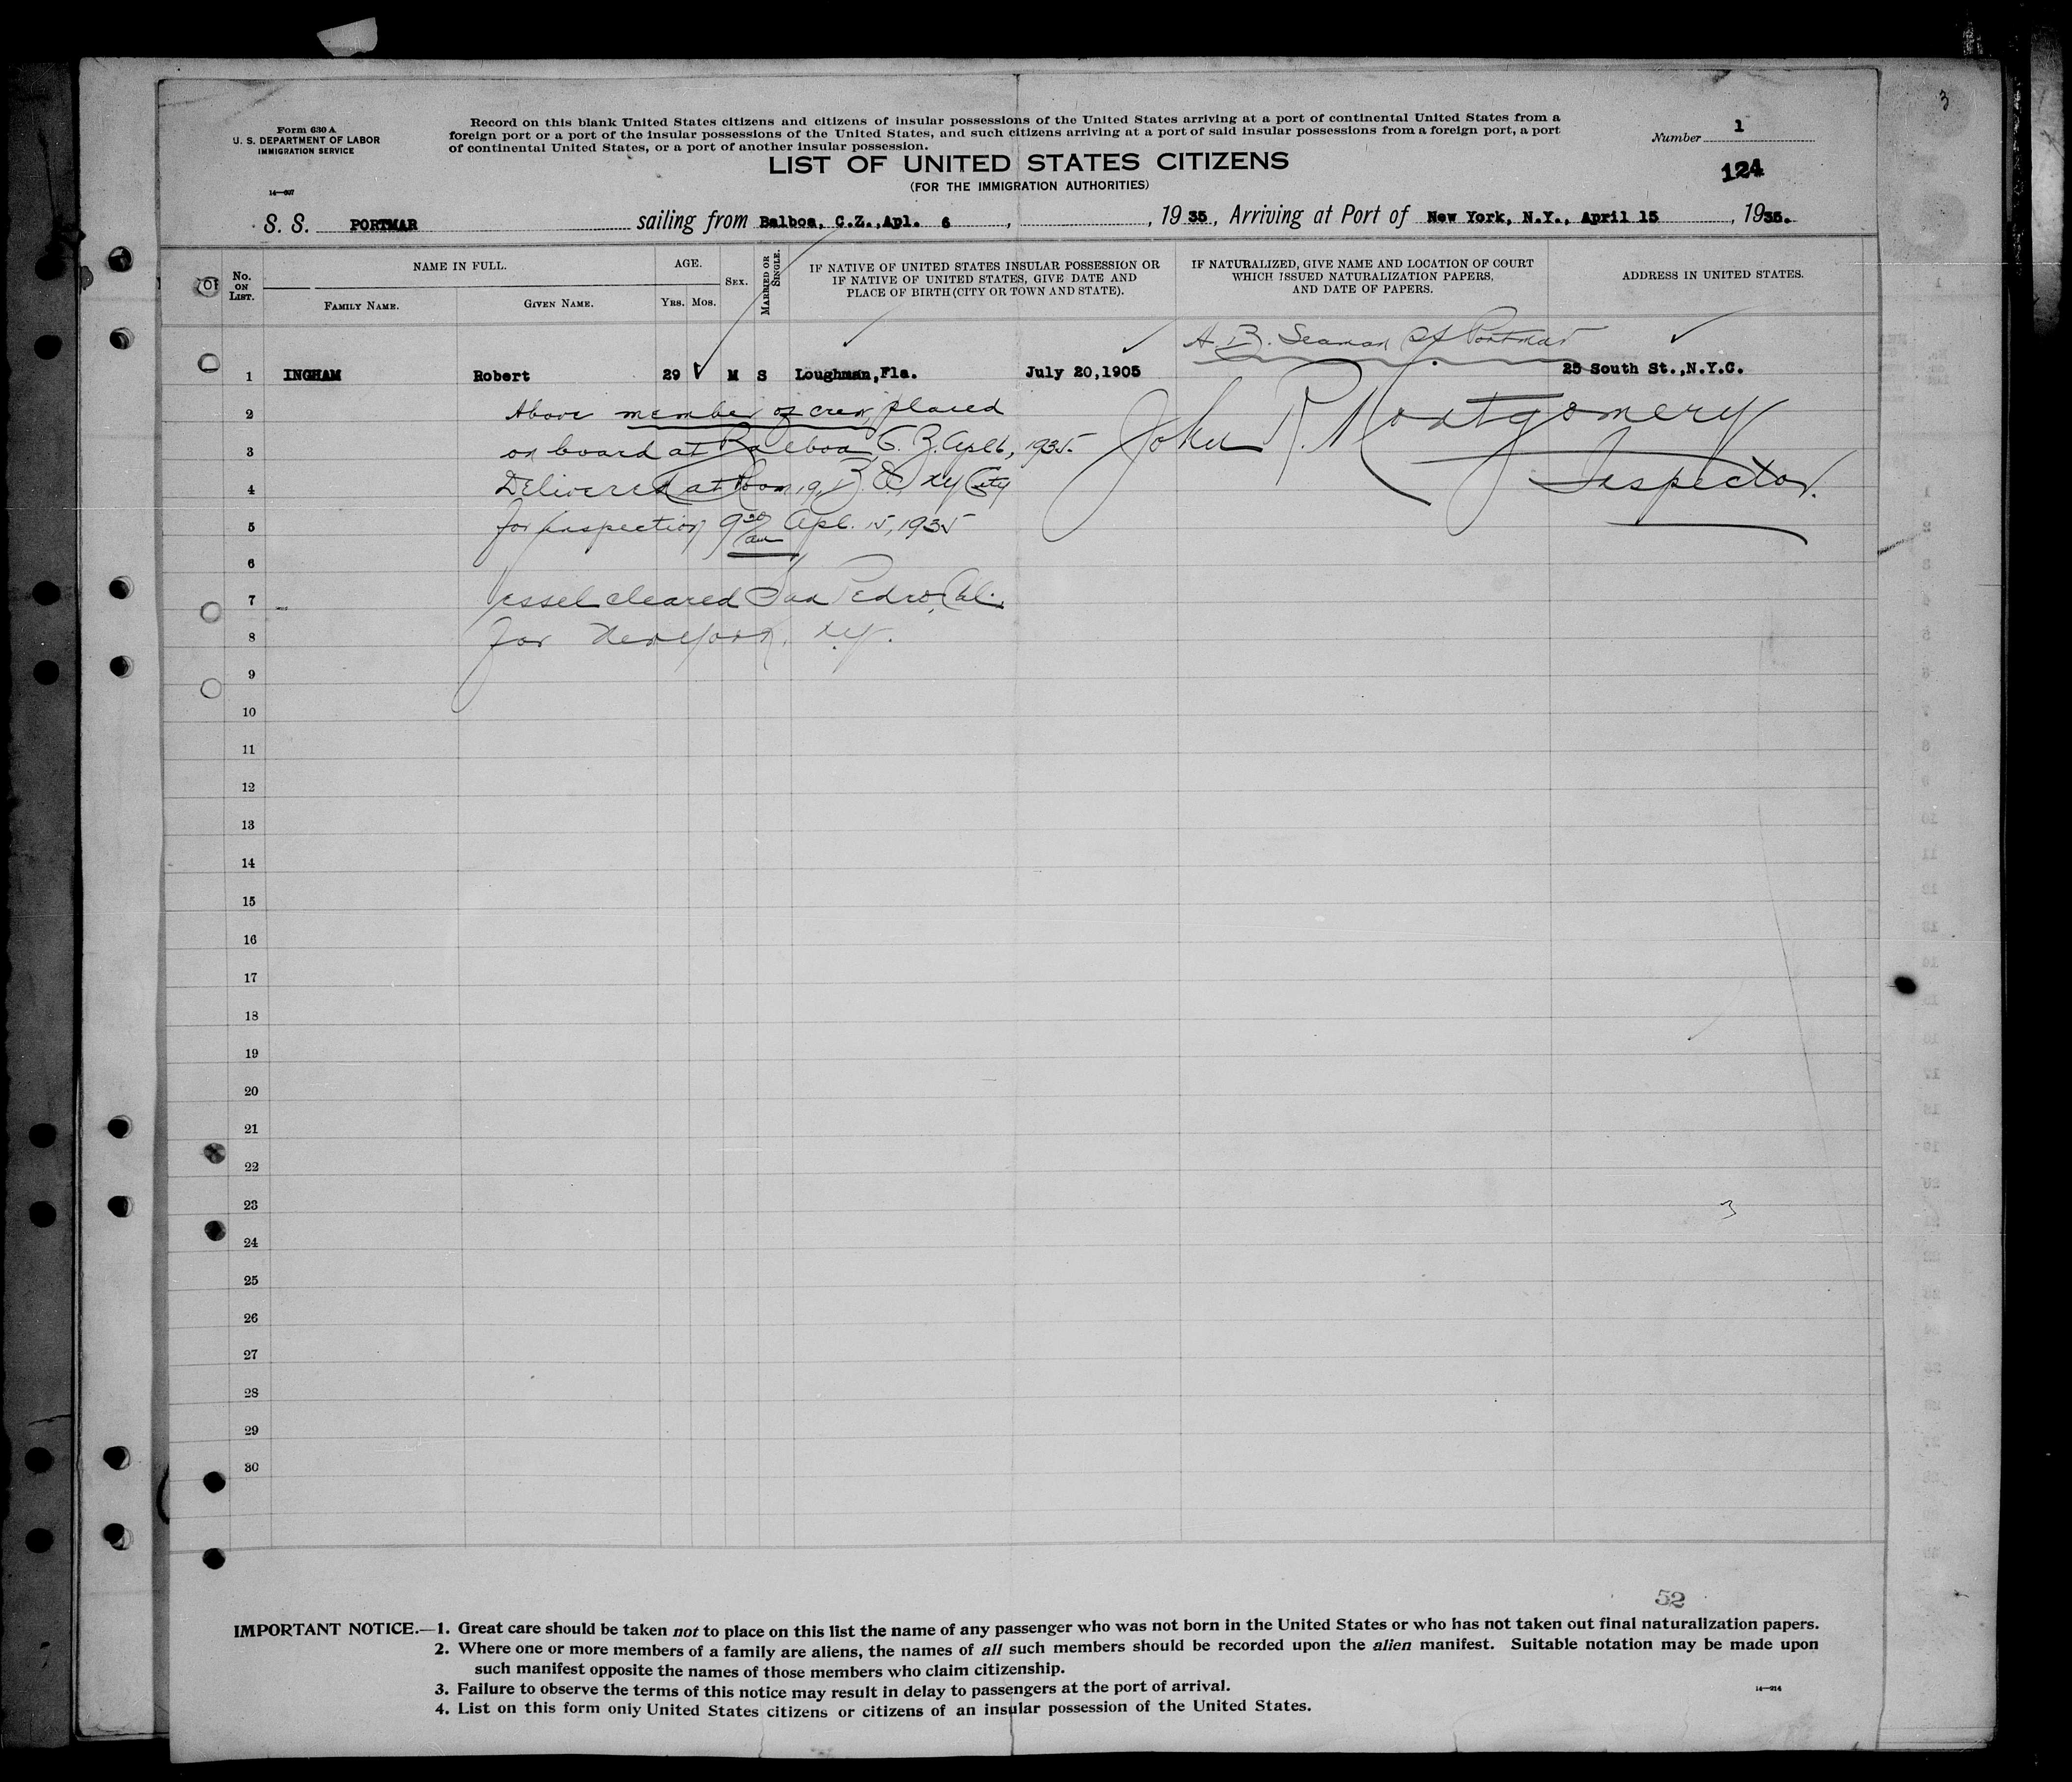 3
Form 630 A
U. S. DEPARTMENT OF LABOR
IMMIGRATION SERVICE
14—627
Record on this blank United States citizens and citizens of insular possessions of the United States arriving at a port of continental United States from a
foreign port or a port of the insular possessions of the United States, and such citizens arriving at a port of said insular possessions from a foreign port, a port
of continental United States, or a port of another insular possession.
Number 1
LIST OF UNITED STATES CITIZENS
124
(FOR THE IMMIGRATION AUTHORITIES)
S. S. PORTMAR sailing from Balboa, C.Z.,Apl. 6 , , 19 35, Arriving at Port of New York, N.Y., April 15 , 1935.
No. ON LIST.
NAME IN FULL.
FAMILY NAME.
GIVEN NAME.
AGE.
YRS. MOS.
SEX.
MARRIED OR SINGLE.
IF NATIVE OF UNITED STATES INSULAR POSSESSION OR
IF NATIVE OF UNITED STATES, GIVE DATE AND
PLACE OF BIRTH (CITY OR TOWN AND STATE).
IF NATURALIZED, GIVE NAME AND LOCATION OF COURT
WHICH ISSUED NATURALIZATION PAPERS,
AND DATE OF PAPERS.
ADDRESS IN UNITED STATES.
A. B. Seaman SS Portmar
1 INGHAM Robert 29 M S Loughman,Fla. July 20,1905 25 South St.,N.Y.C.
2 Above member of crew, placed
3 on board at Balboa, C. Z. Apl 6, 1935. John R. Montgomery
4 Delivered at Room 19, B. O. NY City Inspector.
5 for inspection 9 30 am Apl. 15, 1935
6
7 Vessel cleared San Pedro, Cal.
8 for New York, N.Y.
9
10
11
12
13
14
15
16
17
18
19
20
21
22
23 3
24
25
26
27
28
29
30
52
IMPORTANT NOTICE.—1. Great care should be taken not to place on this list the name of any passenger who was not born in the United States or who has not taken out final naturalization papers.
2. Where one or more members of a family are aliens, the names of all such members should be recorded upon the alien manifest. Suitable notation may be made upon
such manifest opposite the names of those members who claim citizenship.
3. Failure to observe the terms of this notice may result in delay to passengers at the port of arrival.
14—214
4. List on this form only United States citizens or citizens of an insular possession of the United States.